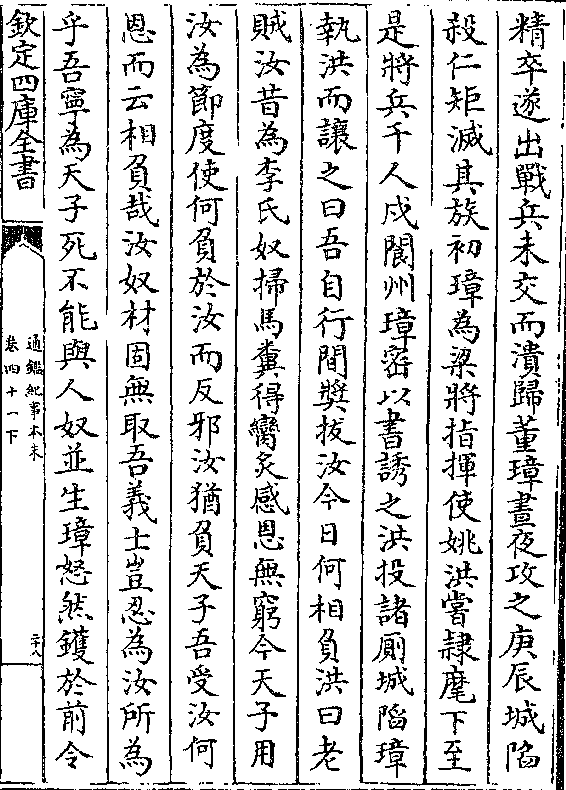 精卒遂出戰兵未交而潰歸董璋晝夜攻之庚辰城陷
殺仁矩滅其族初璋為梁將指揮使姚洪嘗隷麾下至
是將兵千人戍閬州璋密以書誘之洪投諸厠城陷璋
執洪而讓之曰吾自行間奬拔汝今日何相負洪曰老
賊汝昔為李氏奴掃馬糞得臠炙感恩無窮今天子用
汝為節度使何負於汝而反邪汝猶負天子吾受汝何
恩而云相負哉汝奴材固無取吾義士豈忍為汝所為
乎吾寧為天子死不能與人奴並生璋怒然鑊於前令
欽定四庫全書
通鑑紀事本末
卷四十一下
二八